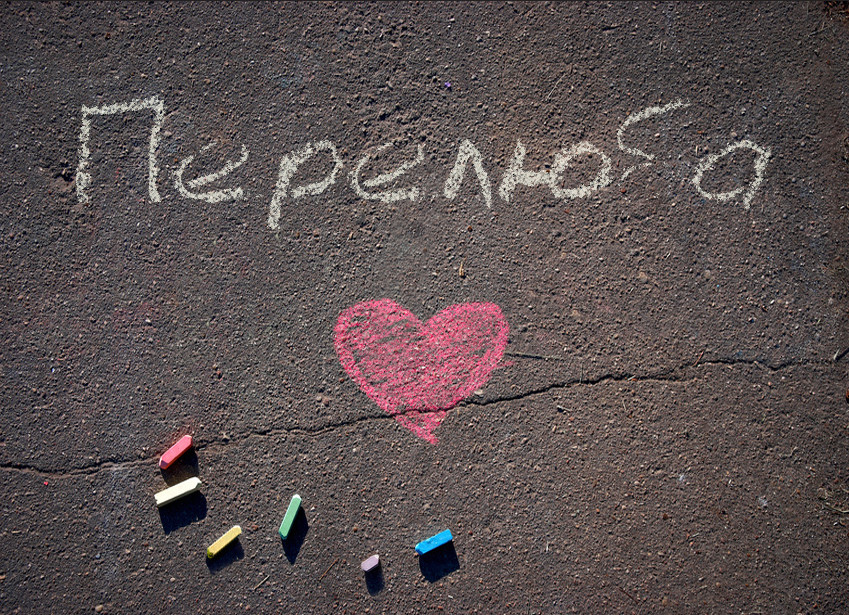 Перелюба